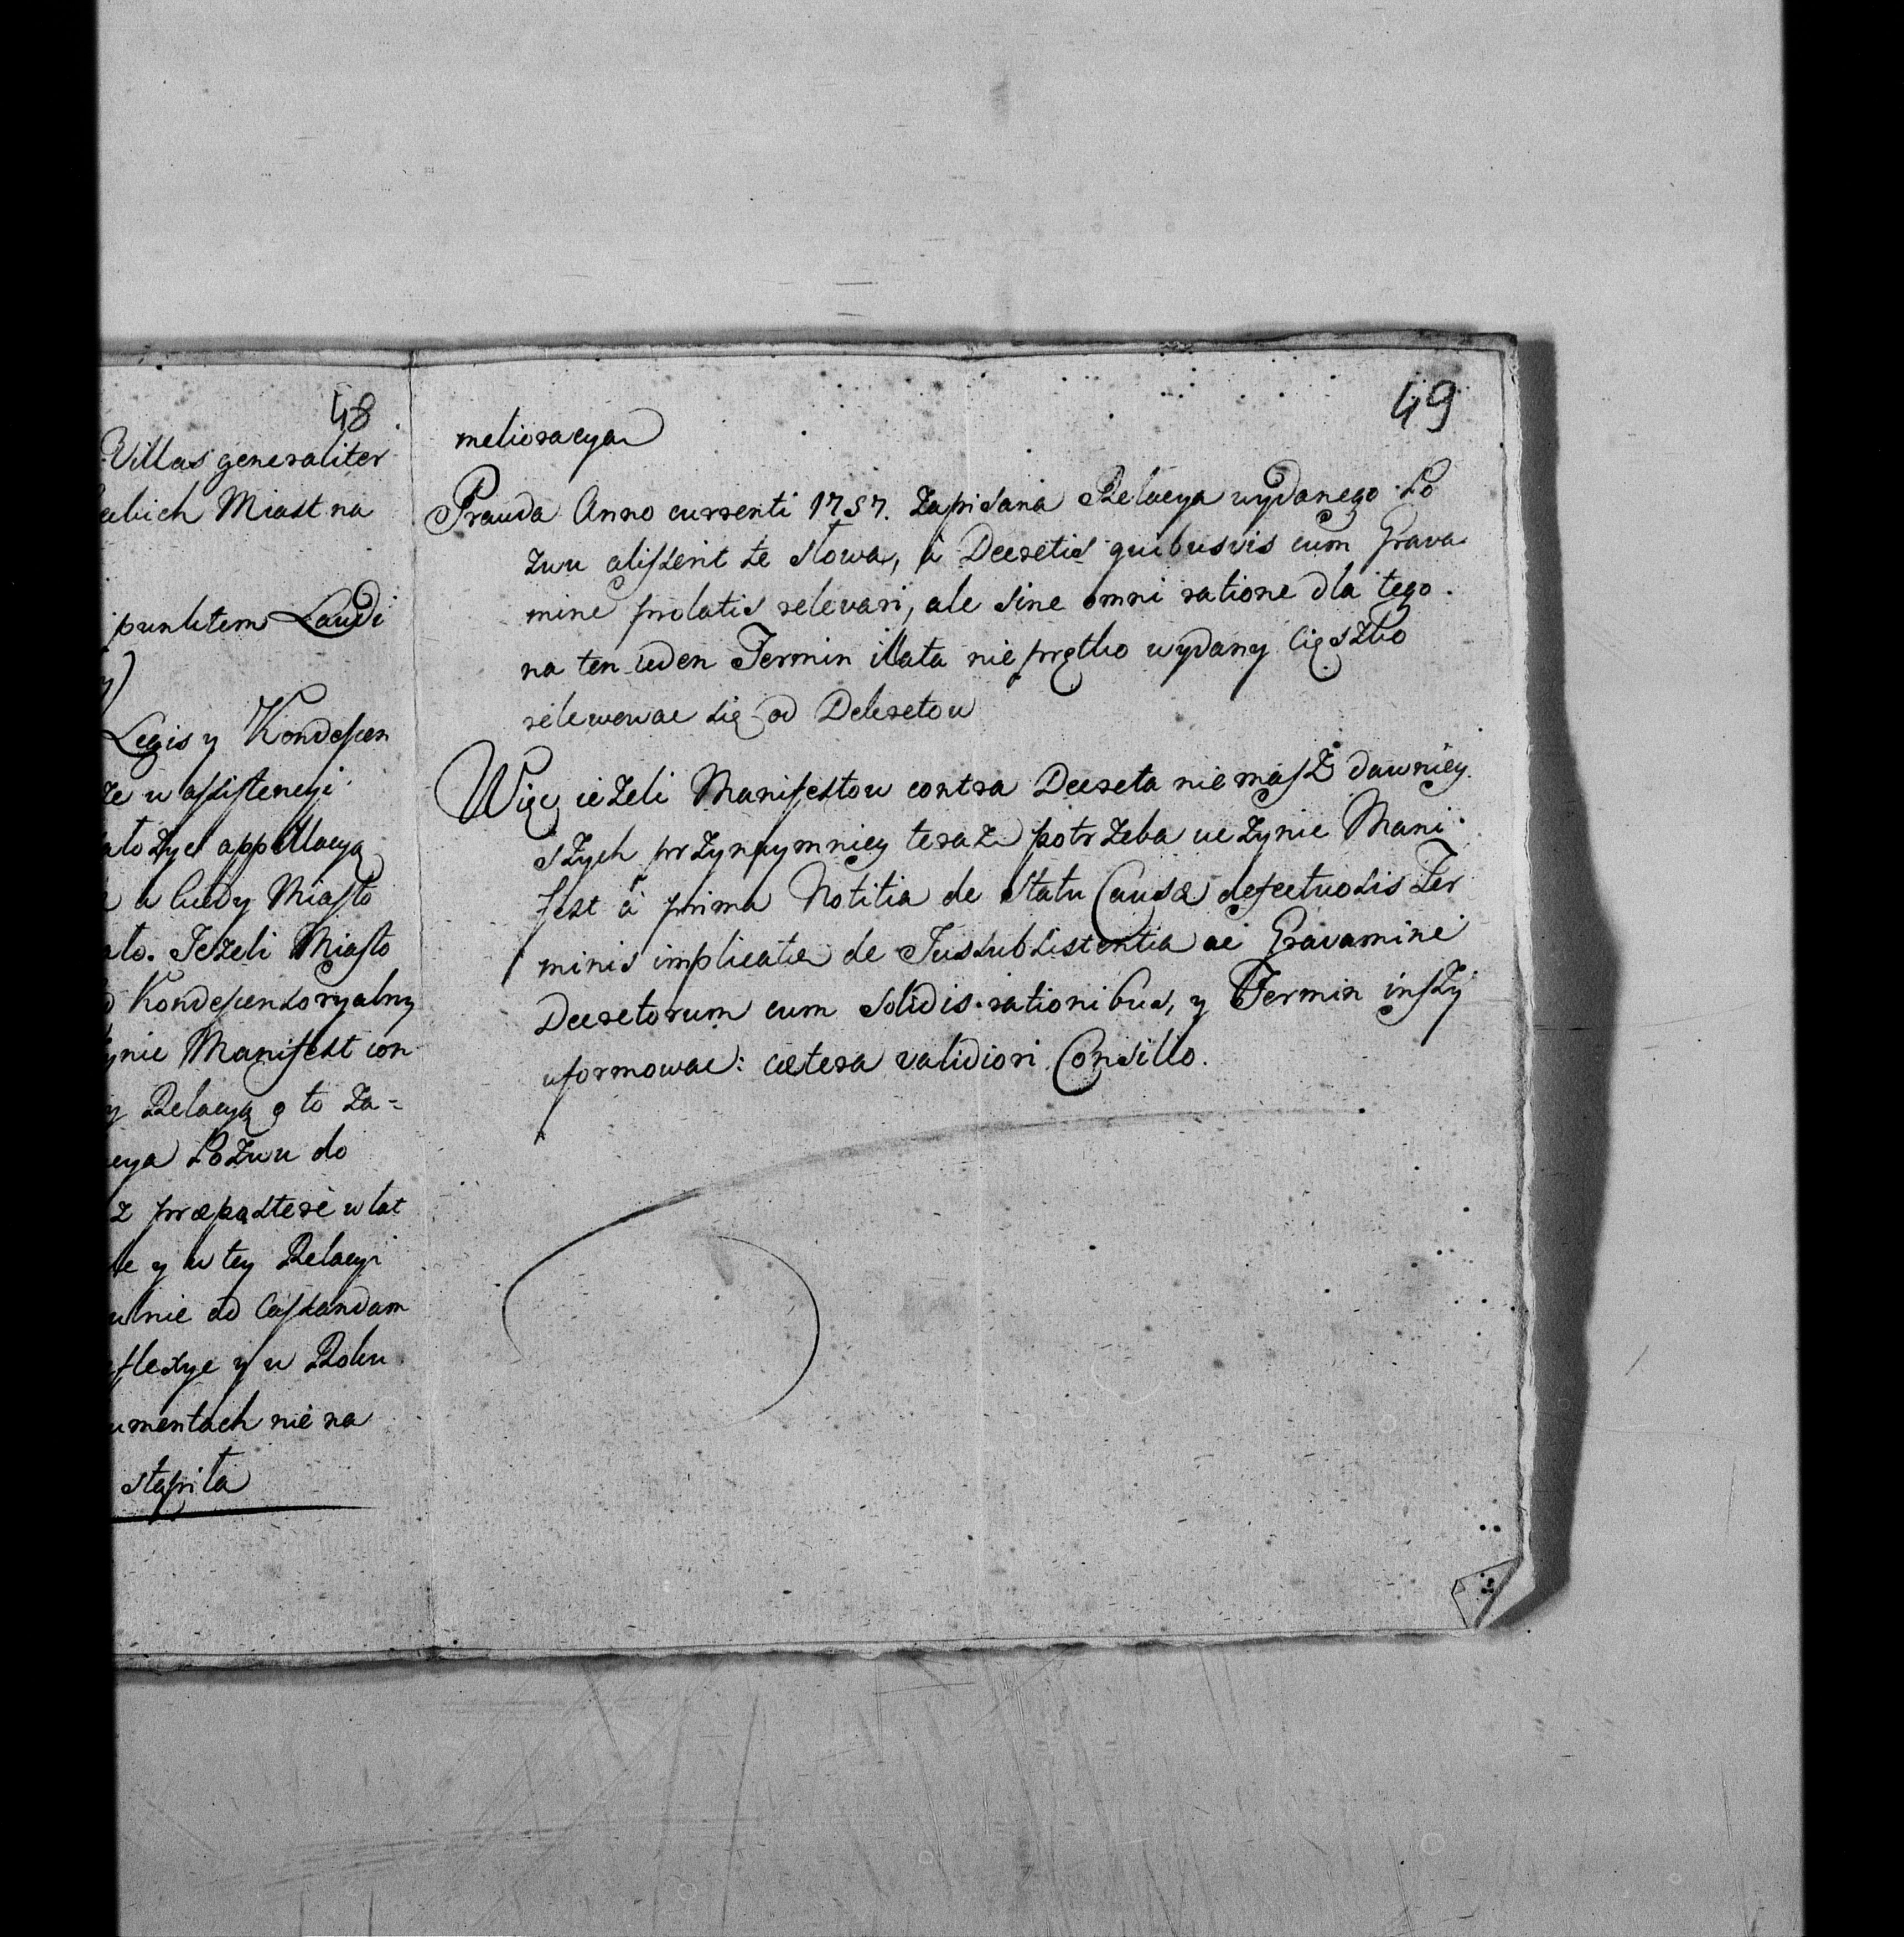 48
Villas generaliter
Miast na
punktem Laudi
Legis y Kondescen
ze w assistencyi
ato zyc appellacyą
a kiedy Miasto
ato. Jeżeli Miasto
Kondescensoryalny
ynic Manifest con
y Relacyą o to Za=
cya Pozwu do
z præpostere w lat
le y w tey Relacyi
ulnie ad Cassandam
flexye y w Roku
umentach nie na
stąpiła
49
melioracya
Prawda Anno currenti 1757. Zapisana Relacya wydanego Po
zwu alisserit te słowa, à Decretis quibusvis cum Grava
mine prolatis relevari, ale sine omni ratione dla tego
na ten ieden Termin illata nie prętko wydany Cięszko
relewować się od Dekretow
Więc ieżeli Manifestow contra Decreta nie masz dawniey
szych przynaymniey teraz potrzeba uczynic Mani
fest à prima Notitia de statu Causæ defectuosis Ter
minis implicatæ de Jussubsistentia ac Gravamine
Decretorum cum solidis rationibus, y Termin inszy
uformowac: cætera validiori Consilio.